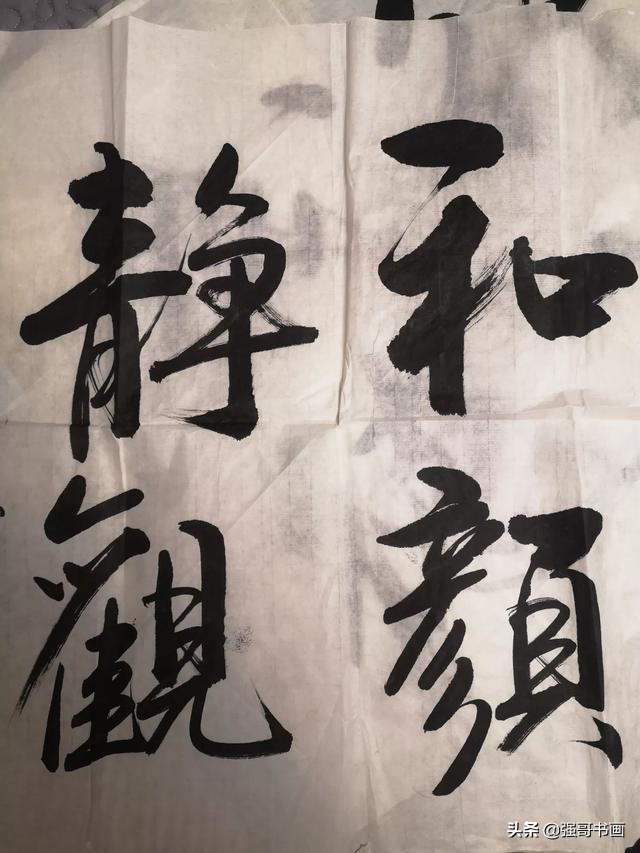 和顔
静觀
头条 @强哥书画